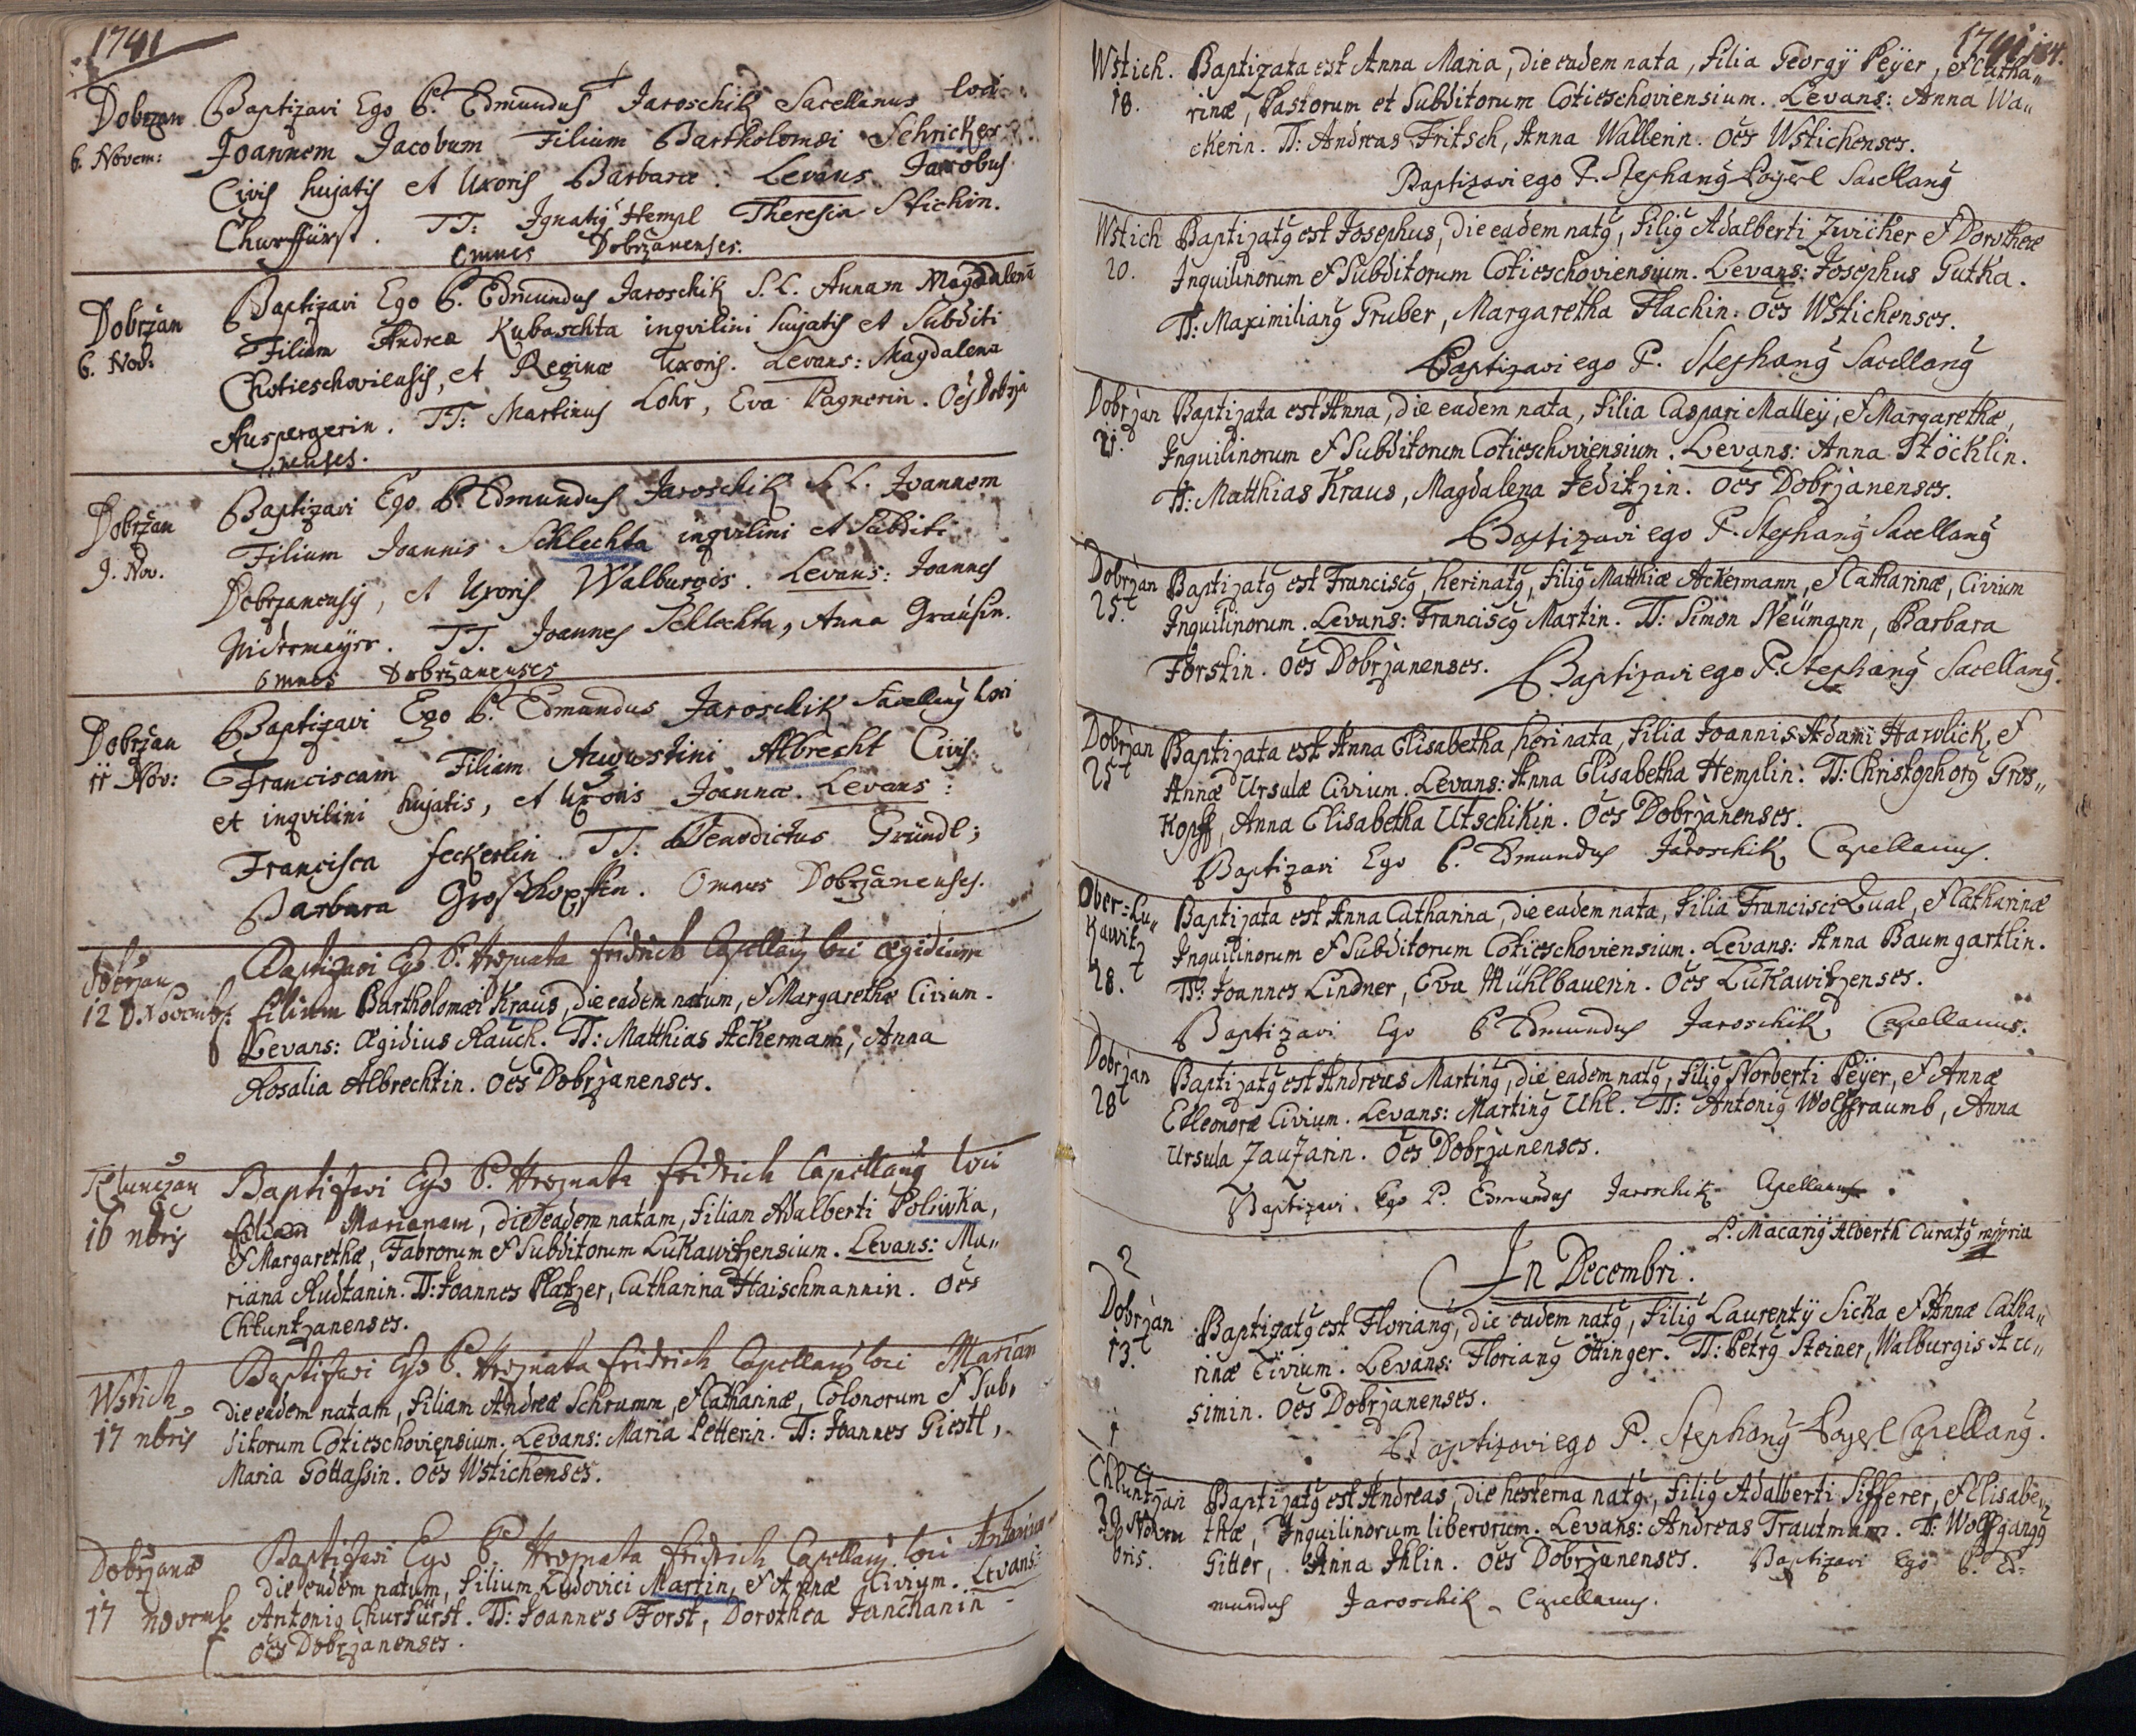 1741
Dobrzan Baptizavi Ego P. Edmundus Jaroschik Sacellanus loci
6. Novem: Joannem Jacobum Filium Bartholomæi Schricker
Civis hujatis et Uxoris Barbaræ. Levans Jacobus
Churffürst. TT: Ignatiꝰ Hempl Theresia Stichin.
omnes Dobrzanenses.
Dobrzan Baptizavi Ego P. Edmundus Jaroschik S. L. Annam Magdalena
6. Nov: Filiam Andreæ Kubaschta inqvilini hujatis et Subditi
Chotieschoviensis, et Reginæ Uxoris. Levans: Magdalena
Auspergerin. TT: Martinus Lohr, Eva Pagnerin. Oēs Dobrza
nenses.
Dobrzan Baptizavi Ego P. Edmundus Jaroschik S. L. Joannem
9. Nov. Filium Joannis Schlechta inqvilini et Subditi
Dobrzanensis, et Uxoris Walburgis. Levans: Joannes
Nidermayer. TT. Joannes Schlechta, Anna Grausin.
omnes Dobrzanenses
Dobrzan Baptizavi Ego P. Edmundus Jaroschik Sacellanꝰ loci
11 Nov: Franciscam Filiam Augustini Albrecht Civis
et inqvilini hujatis, et Uxoris Joannæ. Levans:
Francisca Feckerlin. TT. Benedictus Gründl;
Barbara Großkopffin. Omnes Dobrzanenses.
Dobrzan Baptizavi Ego P. Hroznata Fridrich Capellanꝰ loci Ægidium
12 9. Novembr: filium Bartholomæi Kraus, die eadem natum, & Margarethæ Civium.
Levans: Ægidius Rauch. TT: Matthias Ackermann, Anna
Rosalia Albrechtin. Oēs Dobrzanenses.
Klunczan Baptisavi Ego P. Hroznata Fridrich Capellanꝰ loci
16 9bris filiam Marianam, die eadem natam, Filian Adalberti Poliwka,
& Margarethæ, Fabrorum & Subditorum Lukawitzensium. Levans: Ma„
riana Rudtanin. TT: Joannes Platzer, Catharina Haischmannin. Oēs
Chluntzanenses.
Wstich Baptisavi Ego P. Hroznata Fridrich Capellanꝰ loci Marian
17 nbris die eadem natam, Filiam Andreæ Schramm, & Catharinæ, Colonorum & Sub„
ditorum Cotieschoviensium. Levans: Maria Petterin. TT: Joannes Giestl,
Maria Gottassin. Oēs Wstichenses.
Dobrzanæ Baptisavi Ego P. Hroznata Fridrich Capellanꝰ loci Antonium
17 novemb: die eadem natum, Filium Ludovici Martin, & Annæ Civium. Levans:
Antoniꝰ Churfürst. TT: Joannes Forst, Dorothea Janchanin
Oēs Dobrzanenses.
1741 184.
Wstich. Baptizata est Anna Maria, die eadem nata, Filia Georgÿ Peÿer, & Catha„
18. rinæ, Pastorum et Subditorum Cotieschoviensium. Levans: Anna Wa„
ckerin. TT: Andreas Fritsch, Anna Wallerin. Oēs Wstichenses.
Baptizavi ego P. Stephanꝰ Pogerl Sacellanꝰ
Wstich Baptizatꝰ est Josephus, die eadem natꝰ, Filiꝰ Adalberti Zwicker & Dorotheæ
20. Inquilinorum & Subditorum Cotieschoviensium. Levans: Josephus Gutka.
TT: Maximilianꝰ Gruber, Margaretha Flachin. Oēs Wstichenses.
Baptizavi ego P. Stephanꝰ Sacellanꝰ
Dobrzan Baptizata est Anna, die eadem nata, Filia Caspari Malleÿ, & Margarethæ,
21. Inquilinorum & Subditorum Cotieschoviensium. Levans: Anna Stöcklin.
TT: Matthias Kraus, Magdalena Jeditzin. Oēs Dobrzanenses.
Baptizavi ego P. Stephanꝰ Sacellanꝰ
Dobrzan Baptizatꝰ est Franciscꝰ, heri natꝰ, Filiꝰ Matthiæ Ackermann, & Catharinæ, Civium
25.t Inquilinorum. Levans: Franciscꝰ Martin. TT: Simon Neümann, Barbara
Forstin. Oēs Dobrzanenses. Baptizavi ego P. Stephanꝰ Sacellanꝰ.
Dobrzan Baptizata est Anna Elisabetha, heri nata, Filia Joannis Adami Hawlick, &
25t Annæ Ursulæ Civium. Levans: Anna Elisabetha Hemplin. TT: Christophorꝰ Gros„
kopff, Anna Elisabetha Utschikin. Oēs Dobrzanenses.
Baptizavi Ego P. Edmundus Jaroschik Capellanus.
Ober=Lu„ Baptizata est Anna Catharina, die eadem nata, Filia Francisci Lual, & Catharinæ
kawitz Inquilinorum & Subditorum Cotieschoviensium. Levans: Anna Baumgartlin.
28.t TT: Joannes Lindner, Eva Mühlbauerin. Oēs Lukawitzenses.
Baptizavi Ego P. Edmundus Jaroschik Capellanus.
Dobrzan Baptizatꝰ est Andreas Martinꝰ, die eadem natꝰ, Filiꝰ Norberti Peÿer, & Annæ
28t Eleonoræ Civium. Levans: Martinꝰ Uhl. TT: Antoniꝰ Wolffraumb, Anna
Ursula Zauzarin. Oēs Dobrzanenses.
Baptizavi Ego P. Edmundus Jaroschik Capellanus.
P. Macariꝰ Alberth Curatꝰ mppria
In Decembri.
2
Dobrzan Baptizatꝰ est Florianꝰ, die eadem natꝰ, Filiꝰ Laurentÿ Sicka & Annæ Catha„
13.t rinæ Civium. Levans: Florianꝰ Öttinger. TT: Petrꝰ Steiner, Walburgis Au„
simin. Oēs Dobrzanenses.
Baptizavi ego P. Stephanꝰ Pogerl Capellanꝰ.
1
Chluntzan Baptizatꝰ est Andreas, die hesterna natꝰ, Filiꝰ Adalberti Sifferer, & Elisabe„
30 Novem thæ, Inquilinorum liberorum. Levans: Andreas Trautmann. TT: Wolffgangꝰ
bris. Gitter, Anna Ihlin. Oēs Dobrzanenses. Baptizavi Ego P. Ed=
mundus Jaroschik Capellanus.